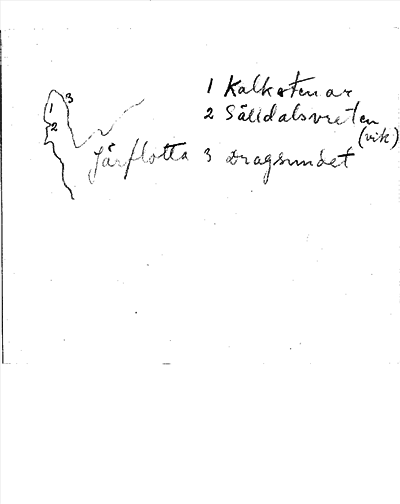 1 Kalkstenar
2 Sälldalsvreten
(vik)
Järflotta
3 Dragsundet
3
1
2